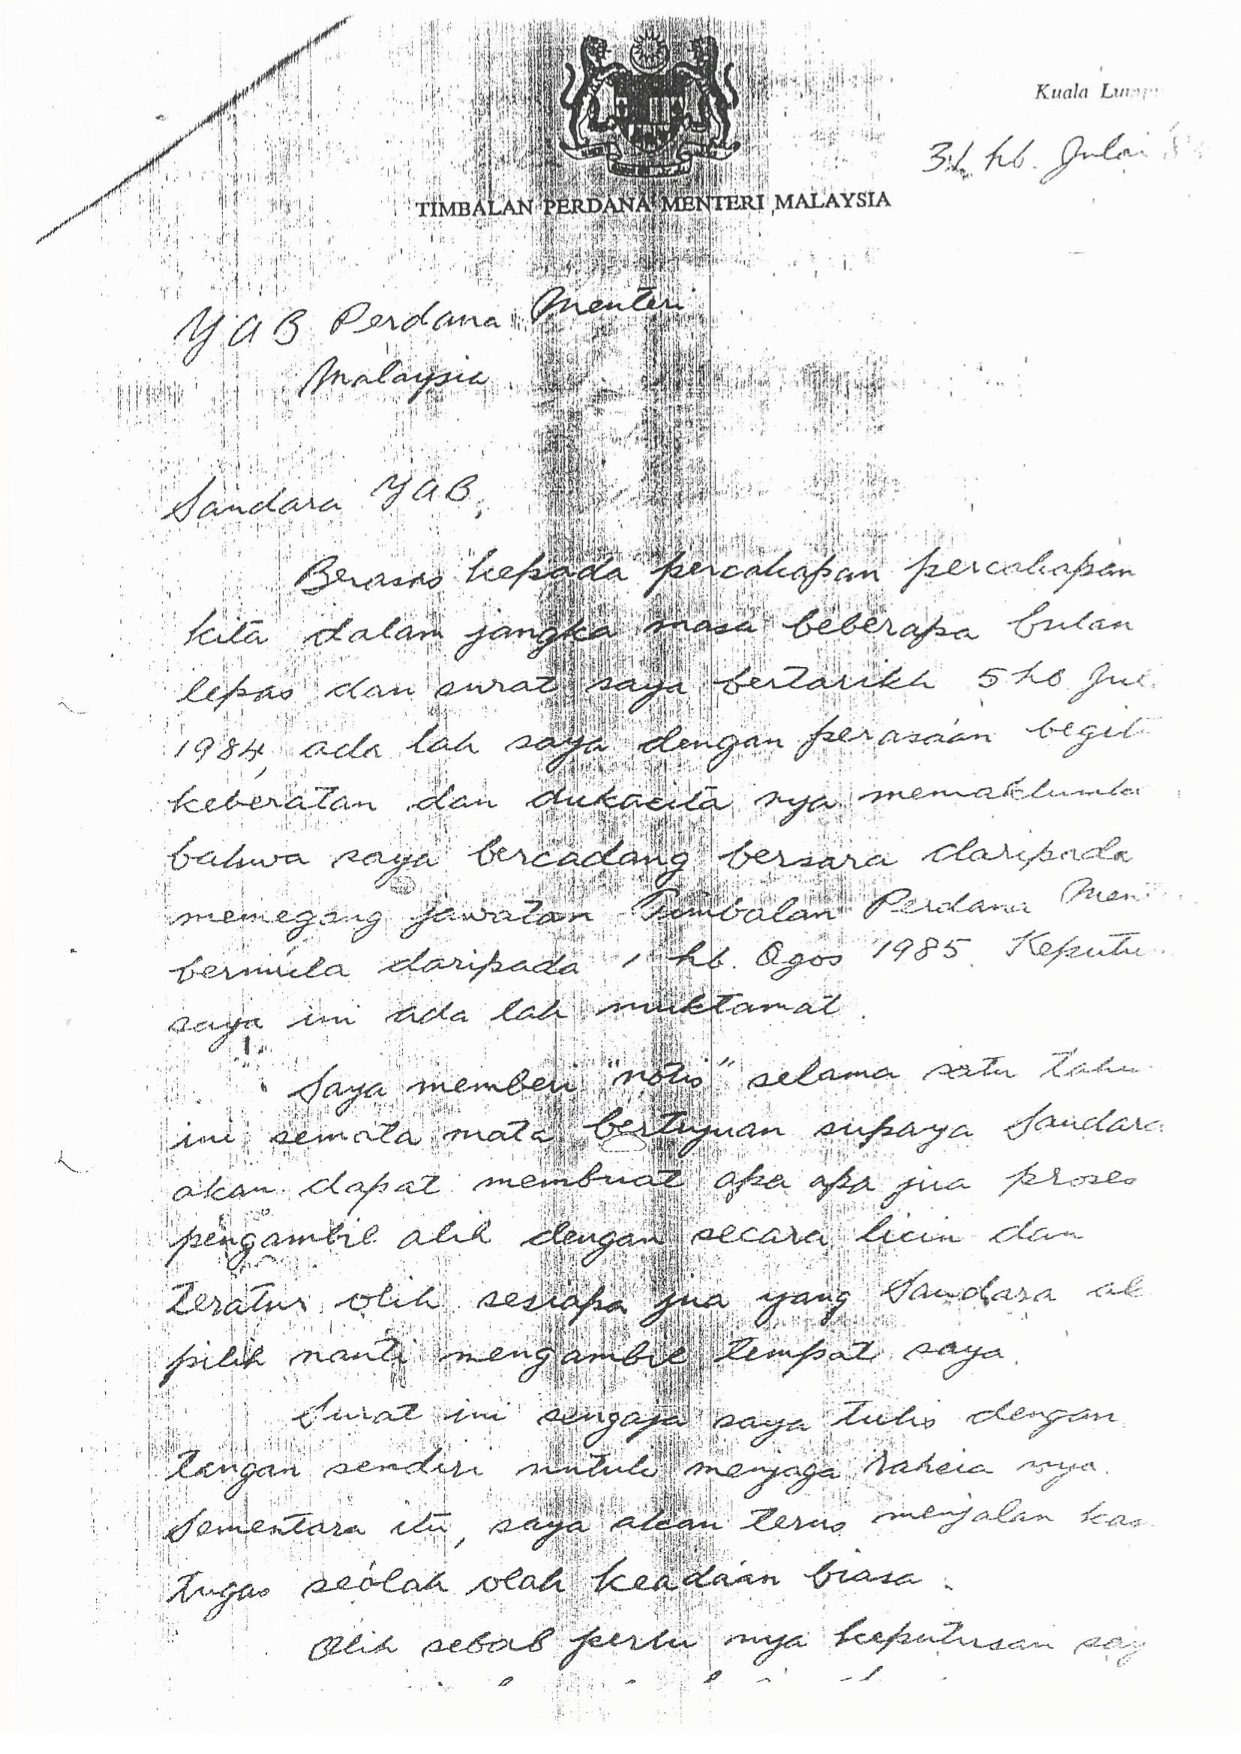 Kuala Lump
31 hb. Julai 8
TIMBALAN PERDANA MENTERI MALAYSIA
YAB Perdana Menteri
Malaysia
Saudara YAB,
Berasas kepada percakapan percakapan
kita dalam jangka masa beberapa bulan
lepas dan surat saya bertarikh 5 hb Jul
1984, ada lah saya dengan perasaan begit
keberatan dan dukacita nya memaklumka
bahwa saya bercadang bersara daripada
memegang jawatan Timbalan Perdana Men
bermula daripada 1 hb. Ogos 1985. Keputu
saya ini ada lah muktamat.
Saya memberi "notis" selama satu tahu
ini semata mata bertujuan supaya Saudara
akan dapat membuat apa apa jua proses
pengambil alih dengan secara licin dan
teratur olih sesiapa jua yang Saudara ak
pilih nanti mengambil tempat saya.
Surat ini sengaja saya tulis dengan
tangan sendiri untuk menjaga rahsia nya.
Sementara itu, saya akan terus menjalan kan
tugas seolah olah keadaan biasa.
Olih sebab perlu nya keputusan say